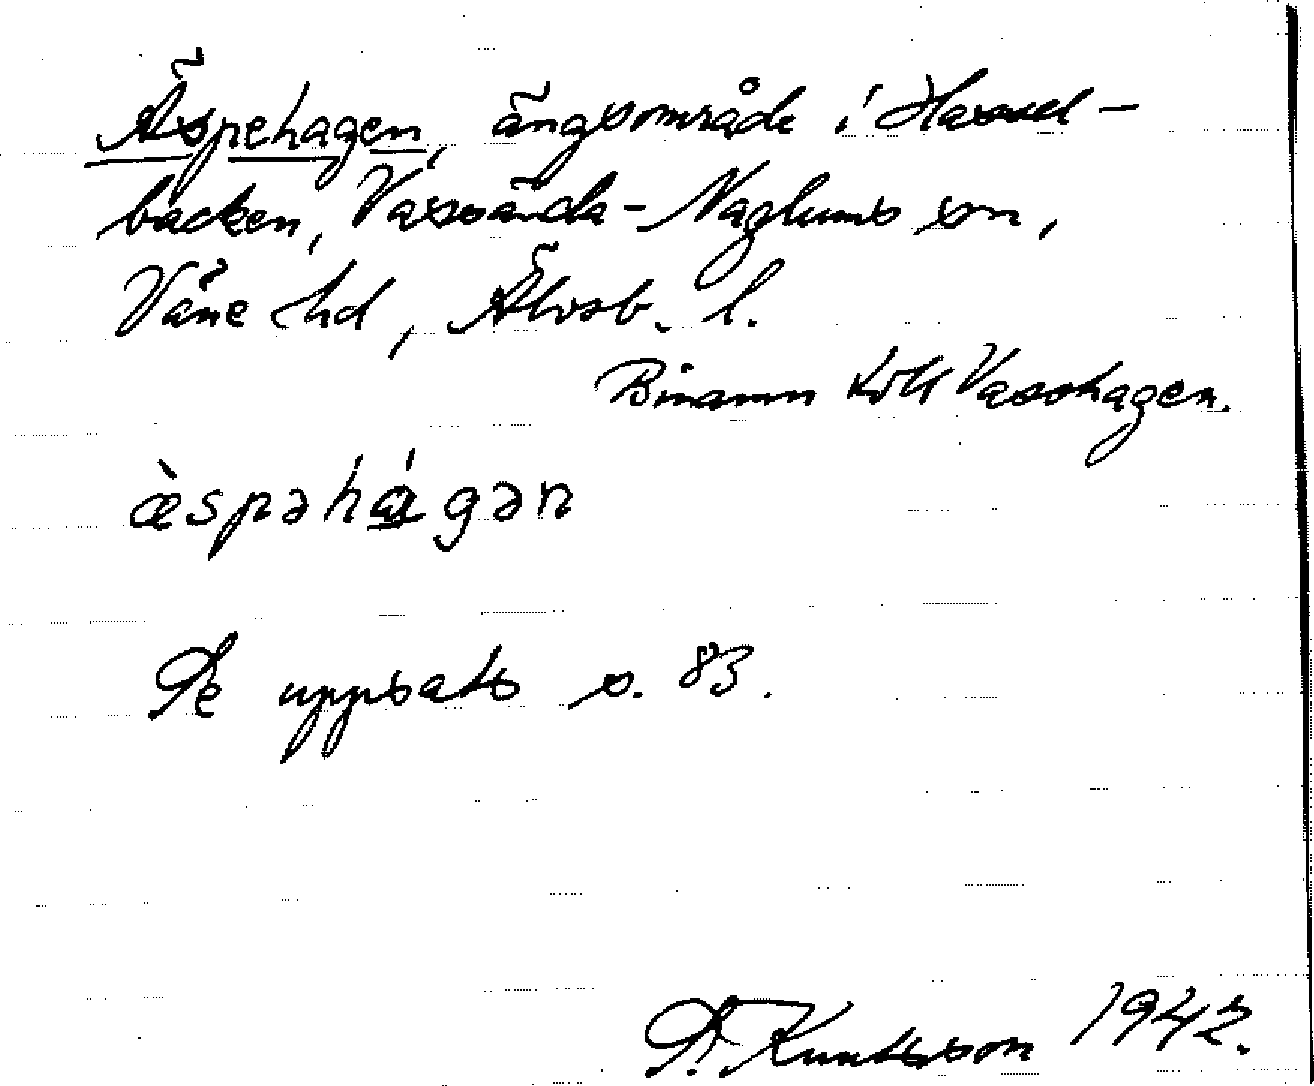 Äspehagen, ängsområde i Hassel-
backen, Vassända-Naglums sn,
Väne hd, Älvsb. l.
Binamn till Vasshagen.
æ̀spəhágən
Se uppsats s. 83.
P. Knutsson 1942.